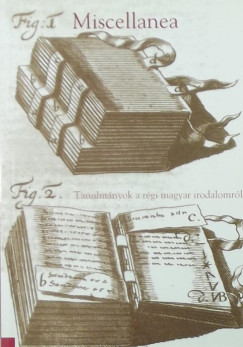 Fig: 1 Miscellanea
Fig: 2. Tanulmányok a régi magyar irodalomról
C.
b
NB